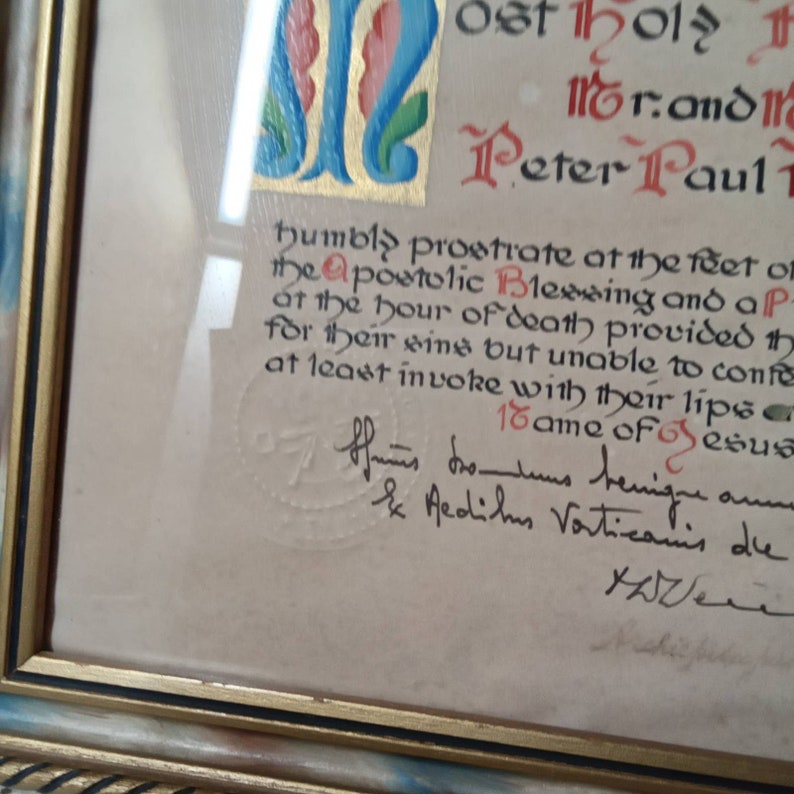 Most Holy
Mr. and M
Peter Paul
humbly prostrate at the feet of
the Apostolic Blessing and a P
at the hour of death provided th
for their sins but unable to confe
at least invoke with their lips
Name of Jesus
benigne annu
& Aedibus Vaticanis die